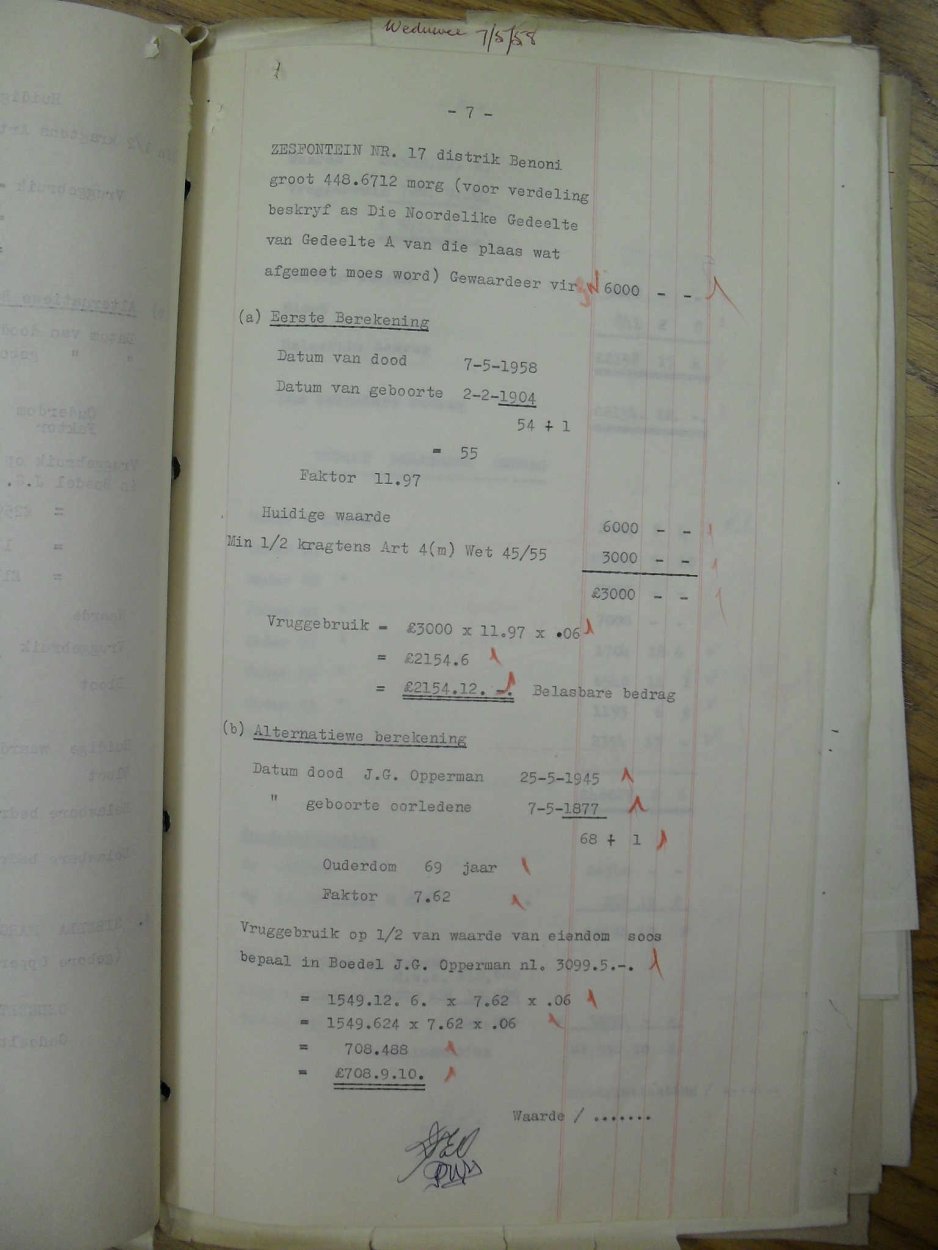 Weduwee 7/5/58
- 7 -
ZESFONTEIN NR. 17 distrik Benoni
groot 448.6712 morg (voor verdeling
beskryf as Die Noordelike Gedeelte
van Gedeelte A van die plaas wat
afgemeet moes word) Gewaardeer vir 6000 - -
(a) Eerste Berekening
Datum van dood 7-5-1958
Datum van geboorte 2-2-1904
54 + 1
= 55
Faktor 11.97
Huidige waarde 6000 - -
Min 1/2 kragtens Art 4(m) Wet 45/55 3000 - -
£3000 - -
Vruggebruik = £3000 x 11.97 x .06
= £2154.6
= £2154.12. -. Belasbare bedrag
(b) Alternatiewe berekening
Datum dood J.G. Opperman 25-5-1945
" geboorte oorledene 7-5-1877
68 + 1
Ouderdom 69 jaar
Faktor 7.62
Vruggebruik op 1/2 van waarde van eiendom soos
bepaal in Boedel J.G. Opperman nl. 3099.5.-.
= 1549.12. 6. x 7.62 x .06
= 1549.624 x 7.62 x .06
= 708.488
= £708.9.10.
Waarde / .......